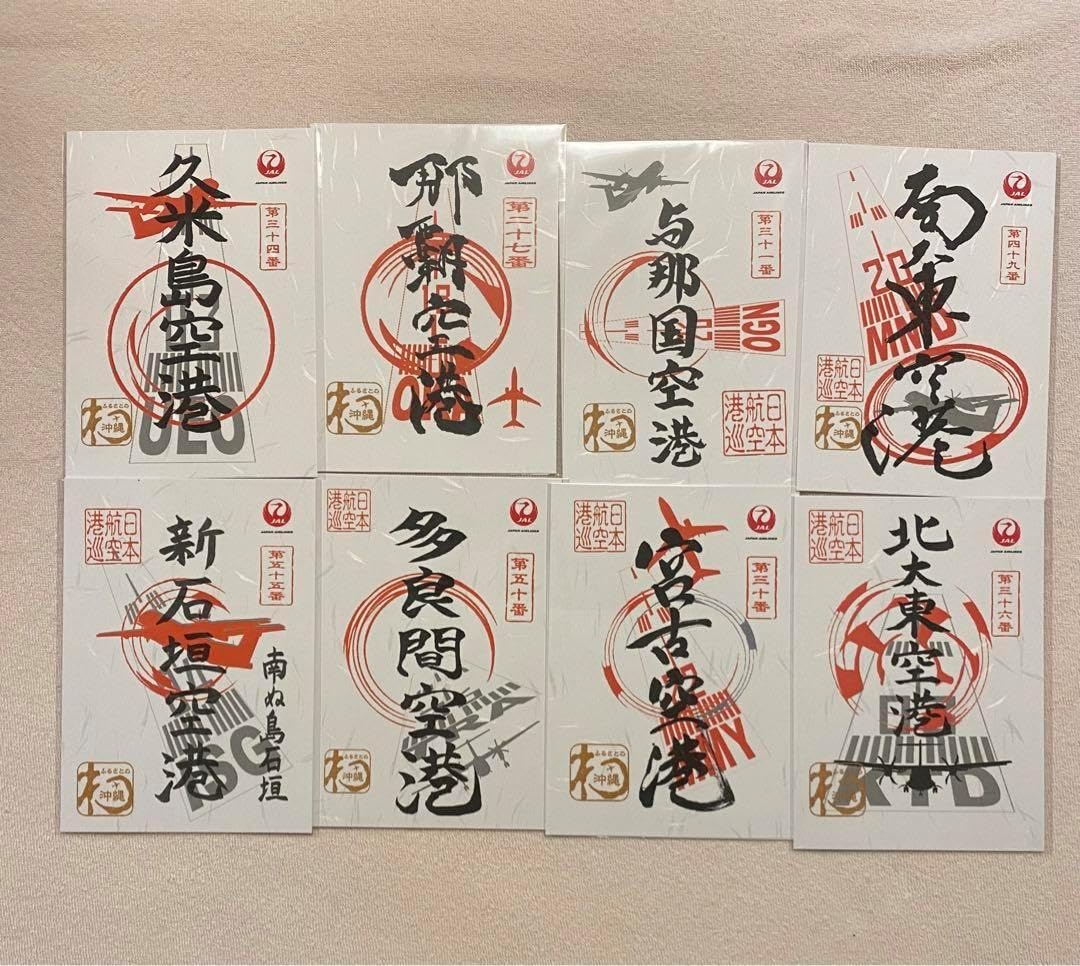 久米島空港
JAL
JAPAN AIRLINES
第三十四番
UEO
ふるさとの
沖縄
那覇空港
JAL
JAPAN AIRLINES
第二十七番
ふるさとの
沖縄
与那国空港
JAL
JAPAN AIRLINES
第三十一番
OGN
日本
航空
港巡
ふるさとの
沖縄
南大東空港
JAL
JAPAN AIRLINES
第四十九番
20
MMD
日本
航空
港巡
ふるさとの
沖縄
新石垣空港
南ぬ島石垣
JAL
JAPAN AIRLINES
第五十五番
日本
航空
港巡
ISG
ふるさとの
沖縄
多良間空港
JAL
JAPAN AIRLINES
第五十番
日本
航空
港巡
TRA
ふるさとの
沖縄
宮古空港
JAL
JAPAN AIRLINES
第三十番
日本
航空
港巡
MMY
ふるさとの
沖縄
北大東空港
JAL
JAPAN AIRLINES
第三十六番
日本
航空
港巡
KTD
ふるさとの
沖縄